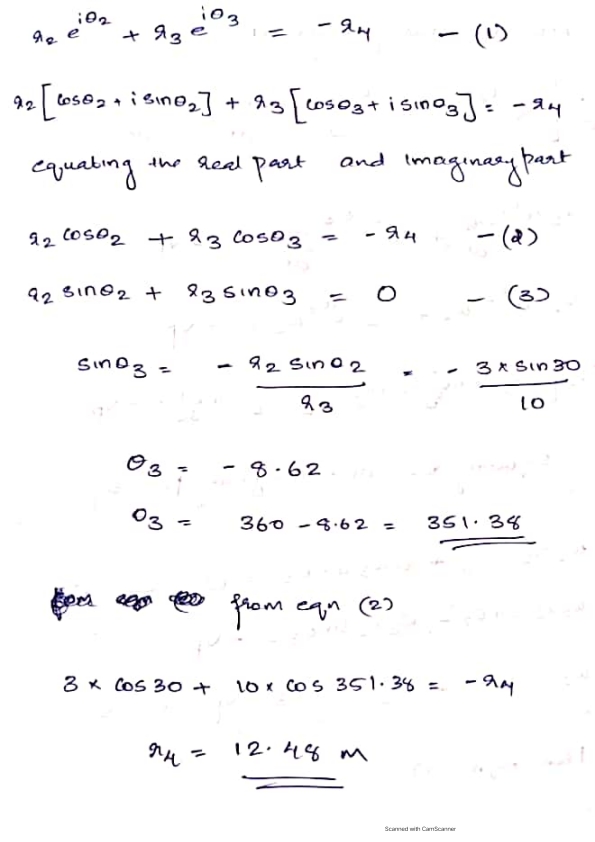 r₂ e^{iθ₂} + r₃ e^{iθ₃} = - r₄ - (1)
r₂ [cosθ₂ + i sinθ₂] + r₃ [cosθ₃ + i sinθ₃] = - r₄
equating the real part and Imaginary part
r₂ cosθ₂ + r₃ cosθ₃ = - r₄ - (2)
r₂ sinθ₂ + r₃ sinθ₃ = 0 - (3)
sinθ₃ = - r₂ sinθ₂ / r₃ = - 3 × sin 30 / 10
θ₃ = - 8.62
θ₃ = 360 - 8.62 = 351.38
from eqn (2)
3 × cos 30 + 10 × cos 351.38 = - r₄
r₄ = 12.48 m
Scanned with CamScanner